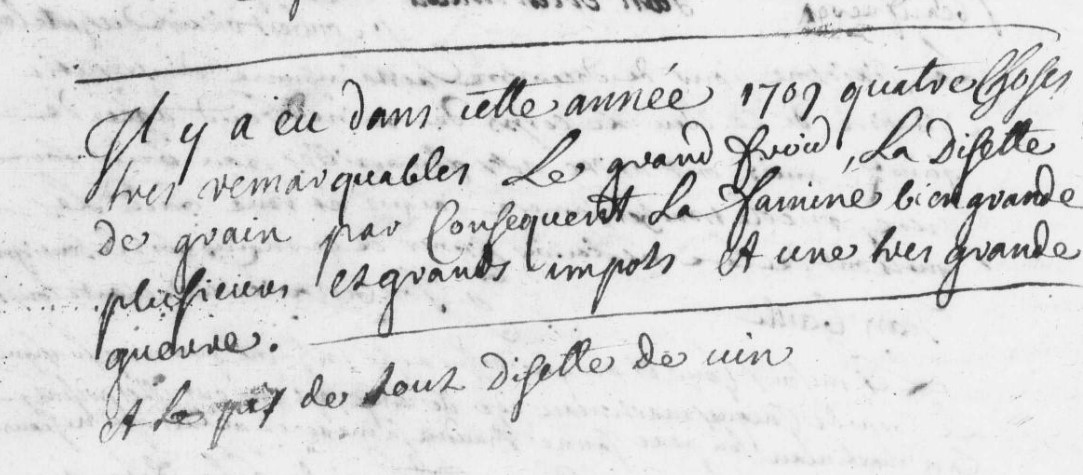 Il y a eu dans cette année 1709 quatre choses
tres remarquables Le grand froid, La disette
de grain par Consequent La famine bien grande
plusieurs et grands impots et une tres grande
guerre.
et le pis de tout disette de vin